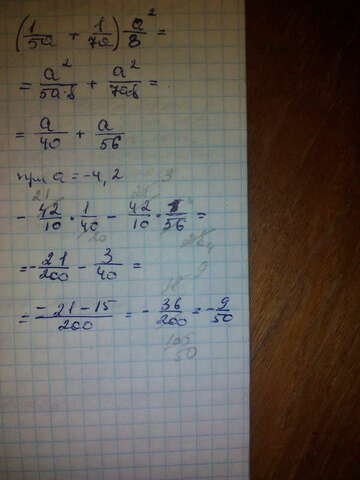 (1/5a + 1/7a) a²/8 =
= a²/5a·8 + a²/7a·8 =
= a/40 + a/56
при a = -4,2
- 42/10 · 1/40 - 42/10 · 1/56 =
= - 21/200 - 3/40 =
= - 21 - 15/200 = - 36/200 = - 9/50